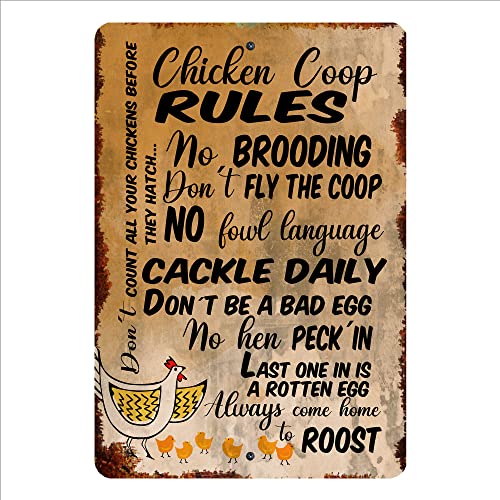 Chicken Coop
RULES
No BROODING
Don't FLY THE COOP
NO fowl language
CACKLE DAILY
DON´T BE A BAD EGG
No hen PECK´IN
LAST ONE IN IS
A ROTTEN EGG
Always come home
to ROOST
Don´t COUNT ALL YOUR CHICKENS BEFORE
THEY HATCH...